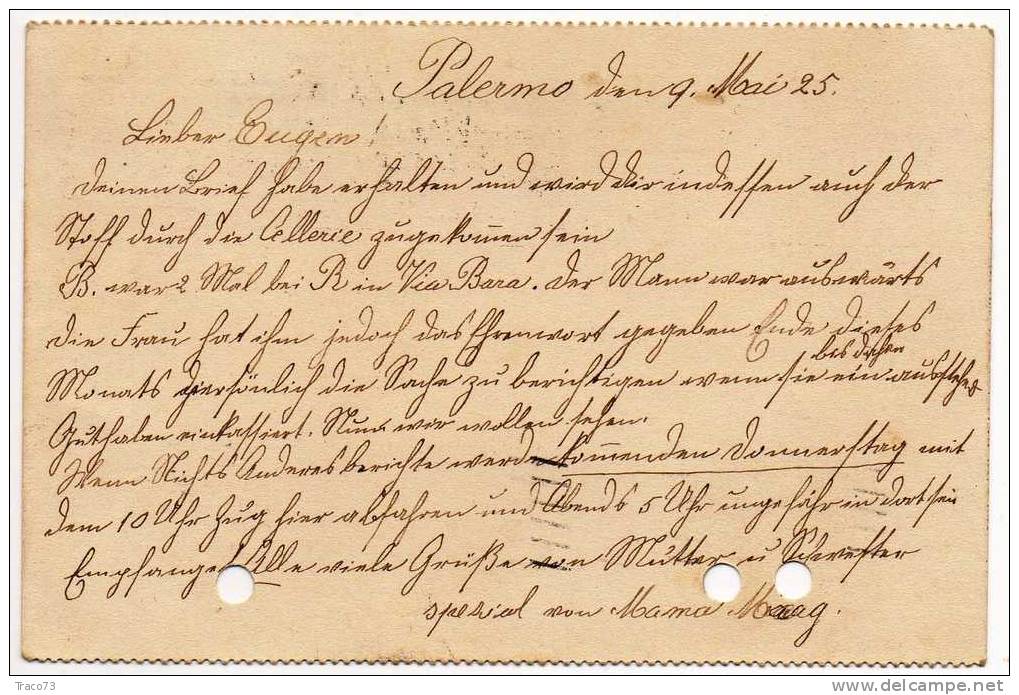 Palermo den 9. Mai 25.
Lieber Eugen!
Deinen Brief habe erhalten und wird Dir indessen auch der
Stoff durch die Cellerie zugekommen sein
B. war 2 Mal bei R in Via Bara. Der Mann war auswärts
die Frau hat ihm jedoch das Ehrenwort gegeben Ende dieses
Monats persönlich die Sache zu berichtigen wenn sie bis dahin ein ausstehend
Guthaben einkassiert. Nun wir wollen sehen.
Wenn Nichts Anderes berichte werde kommenden Donnerstag mit
dem 10 Uhr Zug hier abfahren und Abends 5 Uhr ungefähr in dort sein
Empfange Alle viele Grüße von Mutter u Schwester
spezial von Mama Maag.
Traco73
delcampe.net